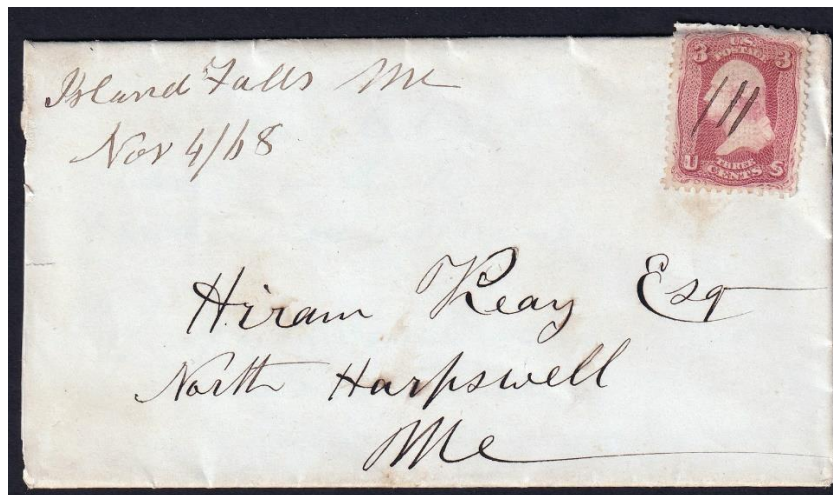 Island Falls Me
Nov 4/68
3 U.S. 3
POSTAGE
U THREE S
CENTS
Hiram Keay Esq
North Harpswell
Me